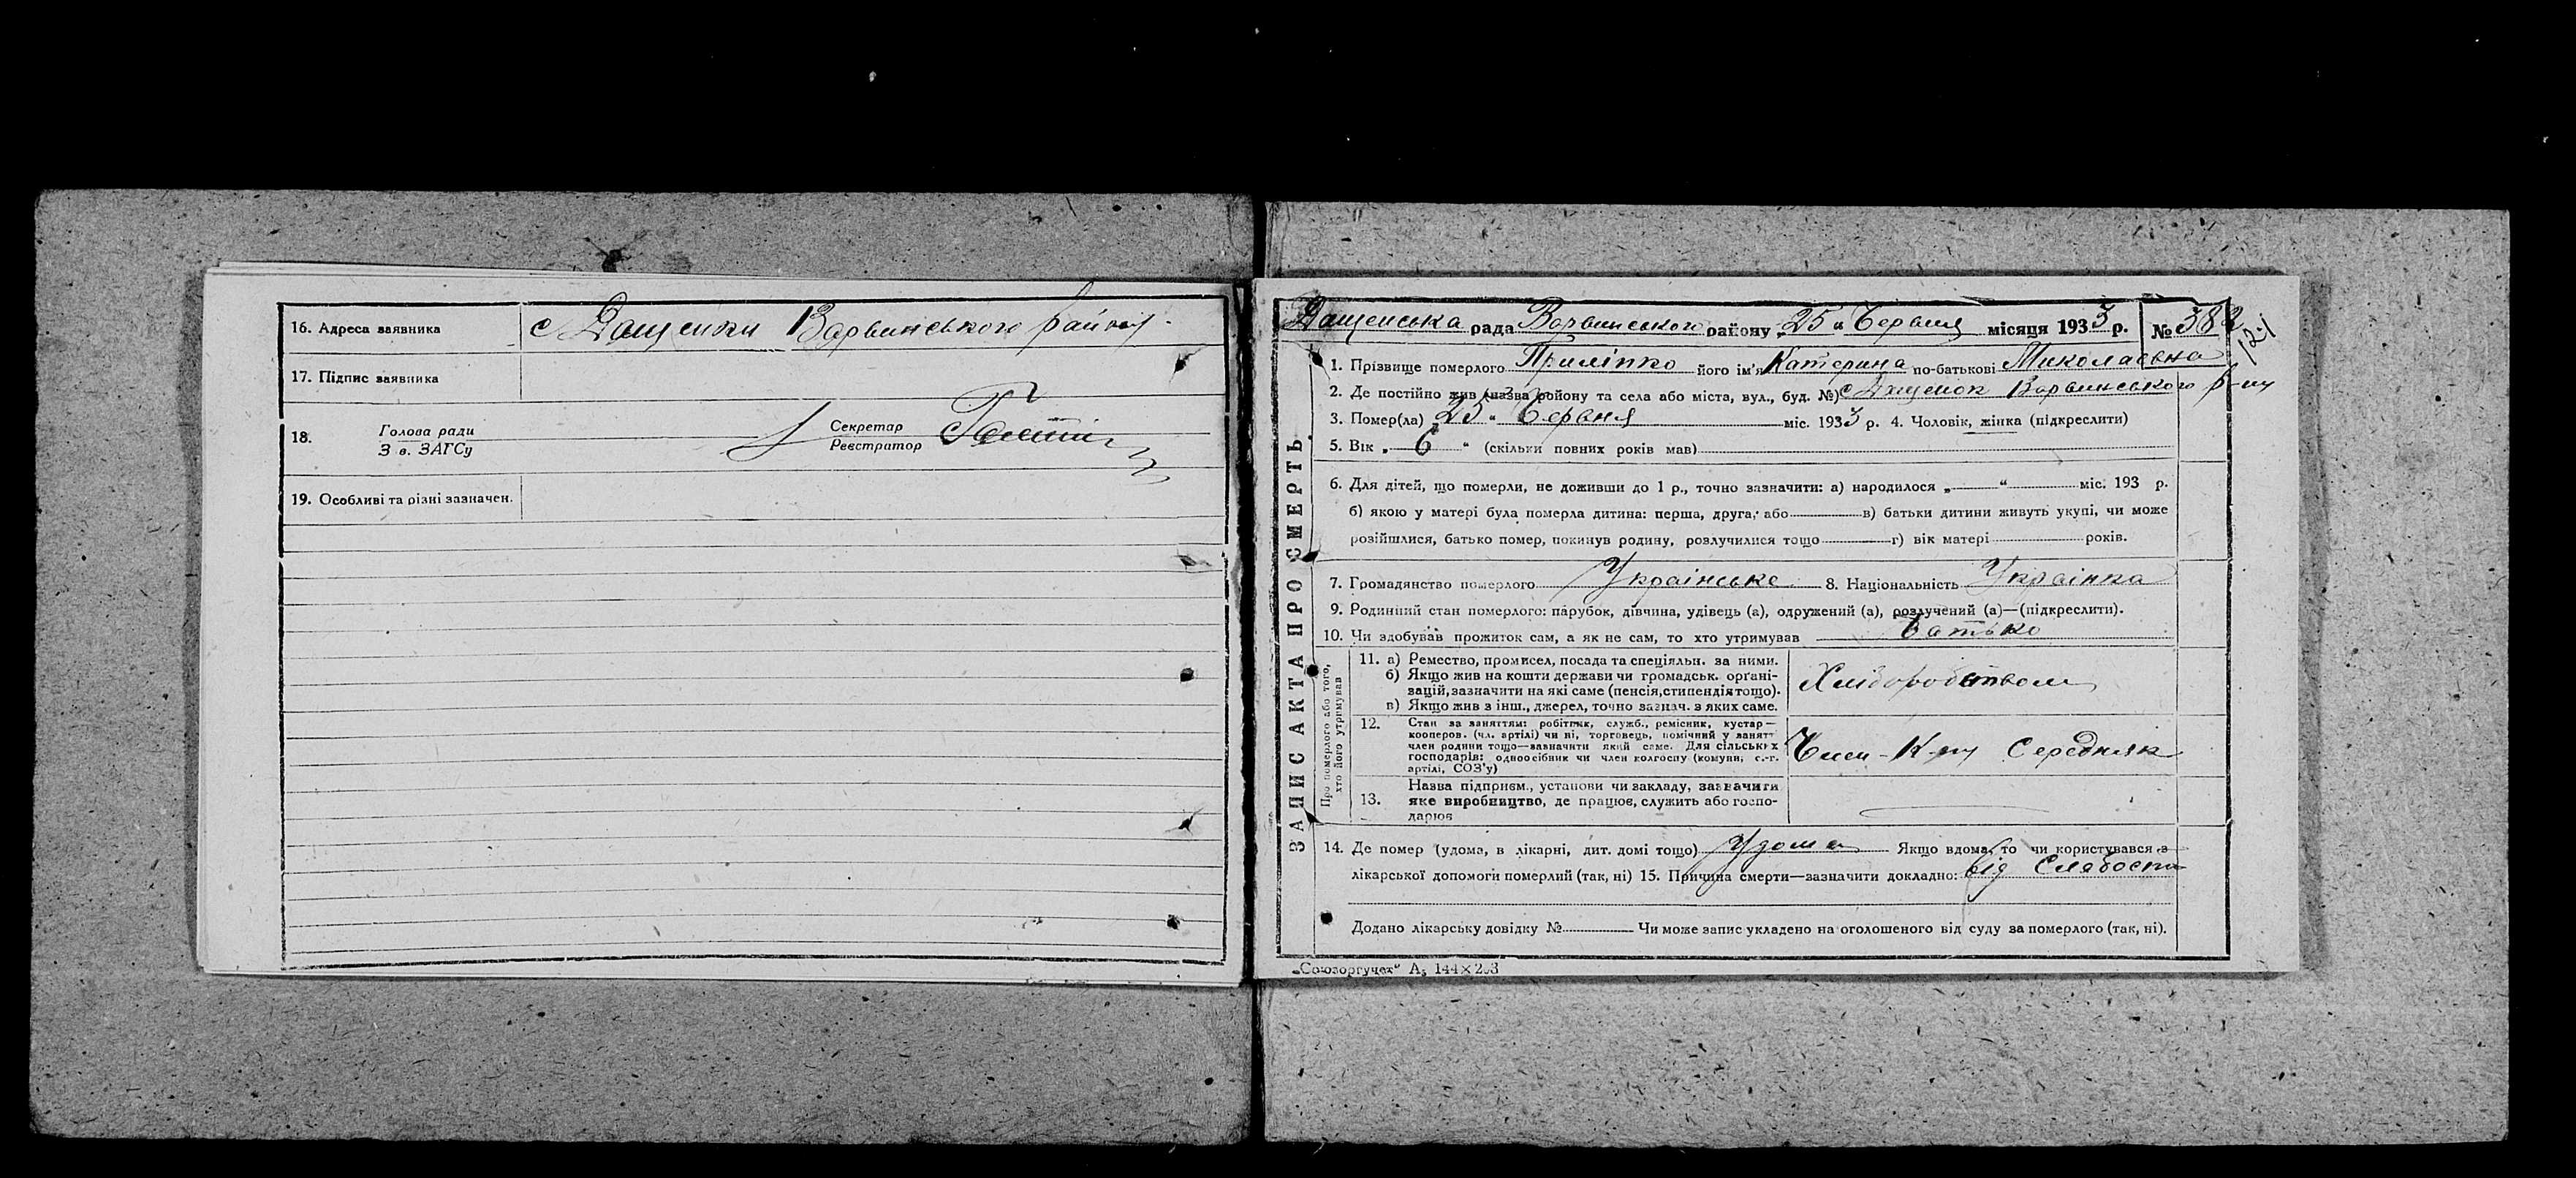 16. Адреса заявника с Дащенки Варвинського району.
17. Підпис заявника
18. Голова ради
З в. ЗАГСу
Секретар
Реєстратор
19. Особливі та різні зазначен.
Дащенська рада Варвинського району „25“ Червня місяця 1933 р. № 38
121
ЗАПИС АКТА ПРО СМЕРТЬ
1. Прізвище померлого Приліпко його ім'я Катерина по-батькові Миколаєвна
2. Де постійно жив (назва району та села або міста, вул., буд. №) с Дащенок Варвинського р-ну
3. Помер(ла) „25“ Червня міс. 1933 р. 4. Чоловік, жінка (підкреслити)
5. Вік „6“ (скільки повних років мав)
6. Для дітей, що померли, не доживши до 1 р., точно зазначити: а) народилося „ “ міс. 193 р.
б) якою у матері була померла дитина: перша, друга, або в) батьки дитини живуть укупі, чи може
розійшлися, батько помер, покинув родину, розлучилися тощо г) вік матері років.
7. Громадянство померлого Українське 8. Національність Українка
9. Родинний стан померлого: парубок, дівчина, удівець (а), одружений (а), розлучений (а)—(підкреслити).
10. Чи здобував прожиток сам, а як не сам, то хто утримував батько
Про померлого або того,
хто його утримував
11. а) Ремество, промисел, посада та спеціяльн. за ними.
б) Якщо жив на кошти держави чи громадськ. орґані-
зацій, зазначити на які саме (пенсія, стипендія тощо).
в) Якщо жив з інш., джерел, точно зазнач. з яких саме.
Хліборобством
12. Стан за заняттям: робітник, служб., ремісник, кустар—
кооперов. (чл. артілі) чи ні, торговець, помічний у занятт
член родини тощо—зазначити який саме. Для сільських
господарів: одноосібник чи член колгоспу (комуни, с.-г.
артілі, СОЗ'у)
Член К-пу Середняк
13. Назва підприєм., установи чи закладу, зазначити
яке виробництво, де працює, служить або госпо-
дарює
14. Де помер (удома, в лікарні, дит. домі тощо) Удома Якщо вдома, то чи користувався з
лікарської допомоги померлий (так, ні) 15. Причина смерти—зазначити докладно: від Слабости
Додано лікарську довідку № Чи може запис укладено на оголошеного від суду за померлого (так, ні).
„Союзоргучет“ А₅ 144×203